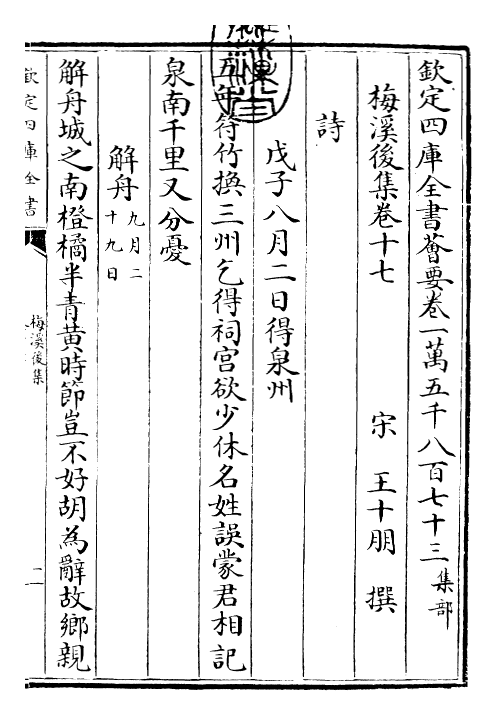 欽定四庫全書薈要卷一萬五千八百七十三集部
梅溪後集卷十七
宋 王十朋 撰
詩
戊子八月二日得泉州
五年符竹換三州乞得祠宫欲少休名姓誤蒙君相記
泉南千里又分憂
解舟九月二十九日
解舟城之南橙橘半青黄時節豈不好胡為辭故鄉親
欽定四庫全書
梅溪後集